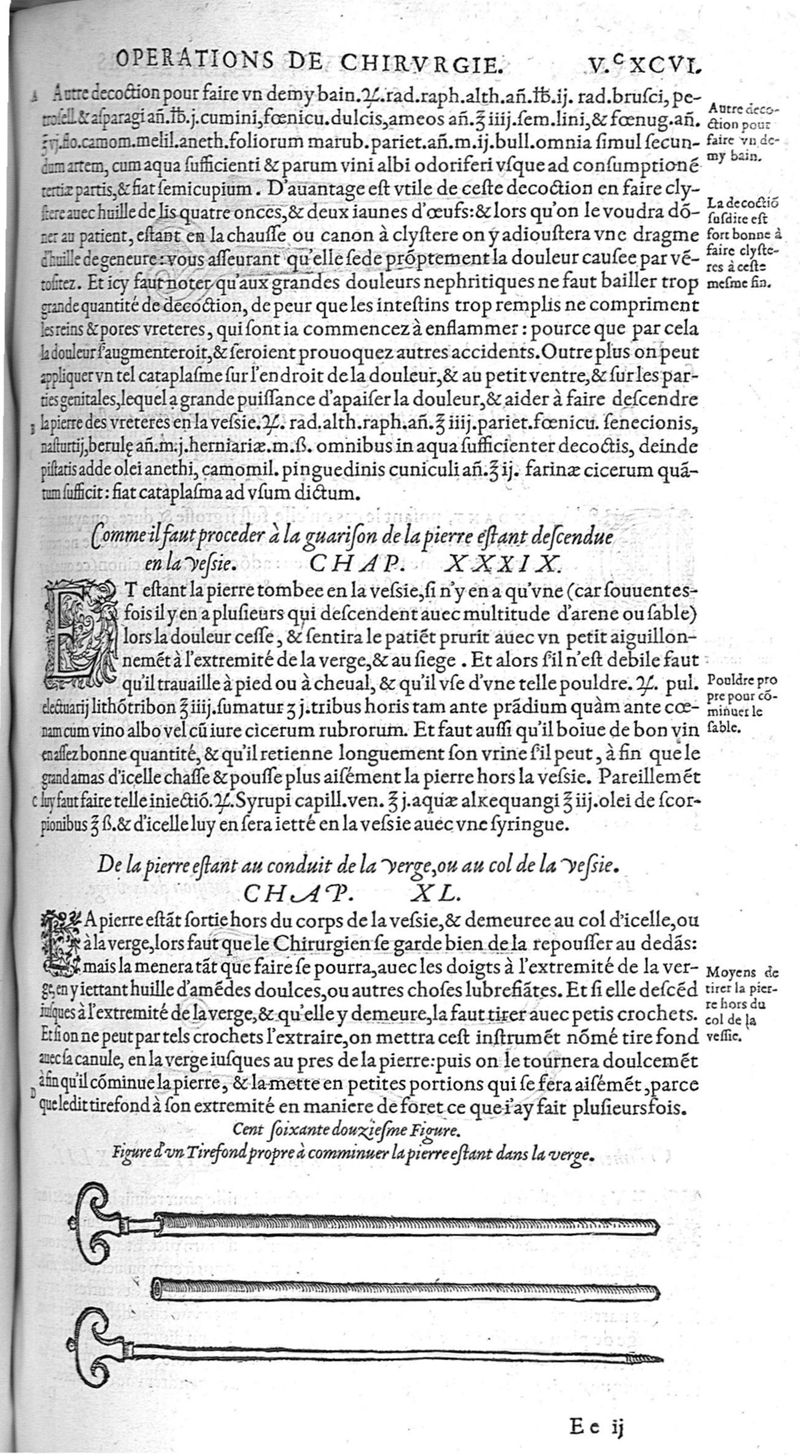 OPERATIONS DE CHIRVRGIE. V.ᶜXCVI.
A Autre decoction pour faire vn demy bain.♃.rad.raph.alth.añ.℔.ij. rad.brusci, pe-
trosell.& asparagi añ.℔.j.cumini,fœnicu.dulcis,ameos añ.℥ iiij.sem.lini,& fœnug.añ.
℥vj.flo.camom.melil.aneth.foliorum marub.pariet.añ.m.ij.bull.omnia simul secun-
dum artem, cum aqua sufficienti & parum vini albi odoriferi vsque ad consumptioné
tertiæ partis,& fiat semicupium. D'auantage est vtile de ceste decoction en faire cly-
stere auec huille de lis quatre onces,& deux iaunes d'œufs:& lors qu'on le voudra dõ-
ner au patient, estant en la chausse ou canon à clystere on y adioustera vne dragme
d'huille de geneure: vous asseurant qu'elle sede prõptement la douleur causee par vẽ-
tositez. Et icy faut noter qu'aux grandes douleurs nephritiques ne faut bailler trop
grande quantité de decoction, de peur que les intestins trop remplis ne compriment
les reins & pores vreteres, qui sont ia commencez à enflammer : pource que par cela
la douleur s'augmenteroit,& seroient prouoquez autres accidents. Outre plus on peut
appliquer vn tel cataplasme sur l'endroit de la douleur,& au petit ventre,& sur les par-
ties genitales, lequel a grande puissance d'apaiser la douleur,& aider à faire descendre
B la pierre des vreteres en la vessie.♃. rad.alth.raph.añ.℥ iiij.pariet.fœnicu. senecionis,
nasturtij,berulę añ.m.j.herniariæ.m.ß. omnibus in aqua sufficienter decoctis, deinde
pistatis adde olei anethi, camomil. pinguedinis cuniculi añ.℥ ij. farinæ cicerum quã-
tum sufficit: fiat cataplasma ad vsum dictum.
Comme il faut proceder à la guarison de la pierre estant descendue
en la vessie. CHAP. XXXIX.
ET estant la pierre tombee en la vessie, si n'y en a qu'vne (car souuentes-
fois il y en a plusieurs qui descendent auec multitude d'arene ou sable)
lors la douleur cesse, & sentira le patiẽt prurit auec vn petit aiguillon-
nemẽt à l'extremité de la verge,& au siege. Et alors s'il n'est debile faut
qu'il trauaille à pied ou à cheual, & qu'il vse d'vne telle pouldre.♃. pul.
electuarij lithõtribon ℥ iiij.sumatur ʒ j.tribus horis tam ante prãdium quàm ante cœ-
nam cum vino albo vel cũ iure cicerum rubrorum. Et faut aussi qu'il boiue de bon vin
en assez bonne quantité, & qu'il retienne longuement son vrine s'il peut, à fin que le
grand amas d'icelle chasse & pousse plus aisément la pierre hors la vessie. Pareillemẽt
C luy faut faire telle iniectiõ.♃.Syrupi capill.ven. ℥ j.aquæ alkequangi ℥ iij.olei de scor-
pionibus ℥ ß.& d'icelle luy en sera ietté en la vessie auec vne syringue.
De la pierre estant au conduit de la verge,ou au col de la vessie.
CHAP. XL.
LA pierre estãt sortie hors du corps de la vessie,& demeuree au col d'icelle,ou
à la verge, lors faut que le Chirurgien se garde bien de la repousser au dedãs:
mais la menera tãt que faire se pourra,auec les doigts à l'extremité de la ver-
ge,en y iettant huille d'amẽdes doulces,ou autres choses lubrefiãtes. Et si elle descẽd
iusques à l'extremité de la verge,& qu'elle y demeure, la faut tirer auec petis crochets.
Et si on ne peut par tels crochets l'extraire,on mettra cest instrumẽt nõmé tire fond
auec sa canule, en la verge iusques au pres de la pierre:puis on le tournera doulcemẽt
D à fin qu'il cõminue la pierre, & la mette en petites portions qui se fera aisémẽt,parce
que ledit tirefond à son extremité en maniere de foret ce que i'ay fait plusieurs fois.
Cent soixante douziesme Figure.
Figure d'vn Tirefond propre à comminuer la pierre estant dans la verge.
Autre deco-
ction pour
faire vn de-
my bain.
La decoctiõ
susdite est
fort bonne à
faire clyste-
res à ceste
mesme fin.
Pouldre pro
pre pour cõ-
minuer le
sable.
Moyens de
tirer la pier-
re hors du
col de la
vessie.
Ee ij